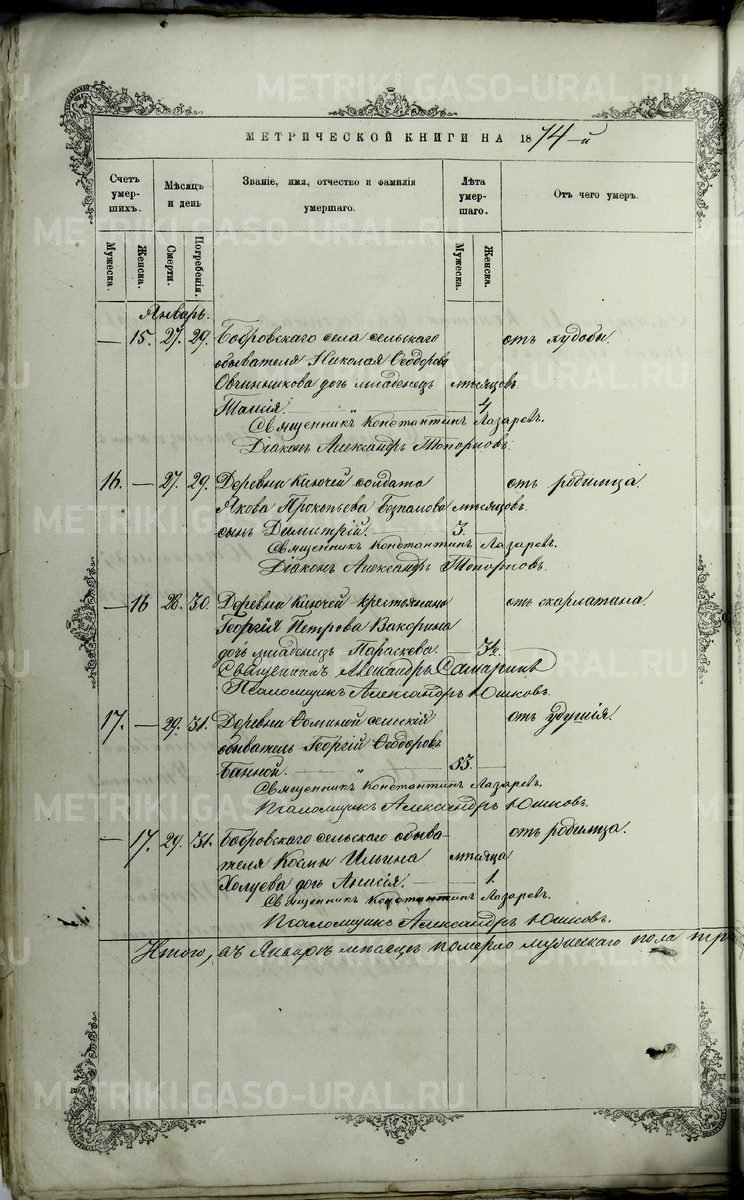 МЕТРИЧЕСКОЙ КНИГИ НА 1874-й
Счетъ умер-шихъ. Мѣсяцъ и день Званіе, имя, отчество и фамилія умершаго. Лѣта умер-шаго. Отъ чего умеръ.
Мужеска. Женска. Смерти. Погребенія. Мужеска. Женска.
Январь.
— 15. 27. 29. Бобровскаго села сельскаго отъ худобы.
обывателя Николая Ѳеодорова
Овчинникова дочь младенецъ мѣсяцовъ
Таисія. 4.
Священникъ Константинъ Лазаревъ.
Діаконъ Александръ Топорковъ.
16. — 27. 29. Деревни Ключей солдата отъ родимца.
Якова Прокопьева мѣсяцовъ
сынъ Димитрій. — 3. —
Священникъ Константинъ Лазаревъ.
Діаконъ Александръ Топорковъ.
— 16 28. 30. Деревни Ключей крестьянина отъ скарлатина.
Георгія Петрова Вакорина
дочь младенецъ Параскева. —
Священникъ Александръ Самаринъ
Псаломщикъ Александръ Юшковъ.
17. — 29. 31. Деревни сельскій отъ удушія.
обыватель Георгій Ѳеодоровъ
Банной. „ — 53. —
Священникъ Константинъ Лазаревъ.
Псаломщикъ Александръ Юшковъ.
— 17. 29. 31. Бобровскаго сельскаго обыва- отъ родимца.
теля Космы Ильина мѣсяца
Холуева дочь Анисія. — 1.
Священникъ Константинъ Лазаревъ.
Псаломщикъ Александръ Юшковъ.
Итого, въ Январѣ мѣсяцѣ померло мужескаго пола
METRIKI.GASO-URAL.RU